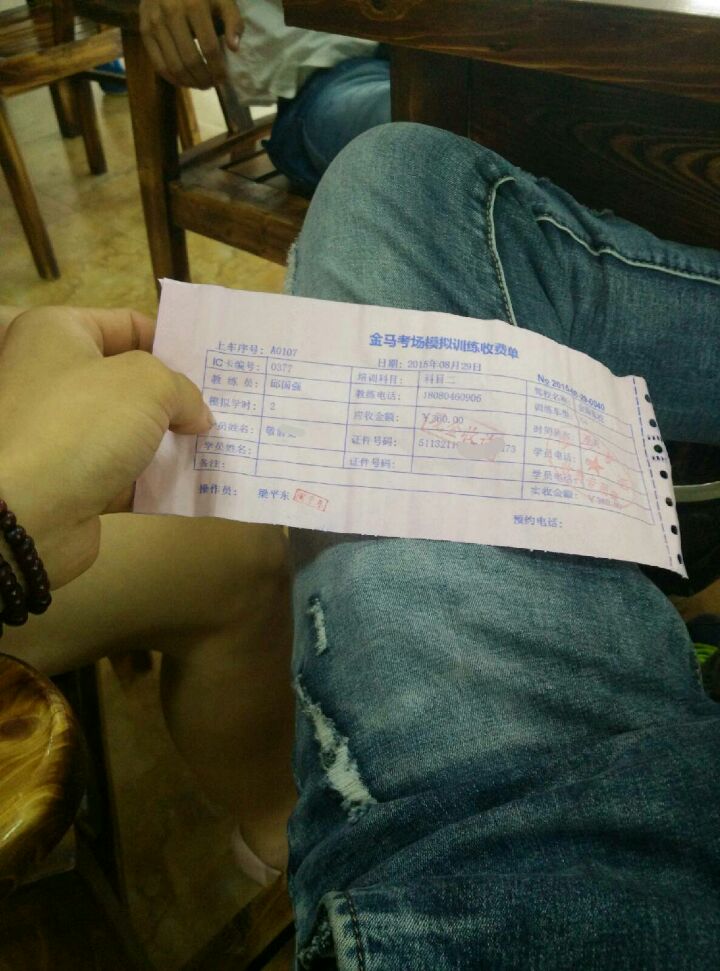 金马考场模拟训练收费单
上车序号: A0107 日期: 2015年08月29日
IC卡编号: 0377 培训科目: 科目二 驾校名称:
教 练 员: 邱国强 教练电话: 18080460906 训练车型:
模拟学时: 2 应收金额: ¥360.00
学员姓名: 敬 证件号码: 学员电话:
学员姓名: 证件号码: 学员电话:
备注: 实收金额: ¥360.00
操作员: 梁平东 预约电话: